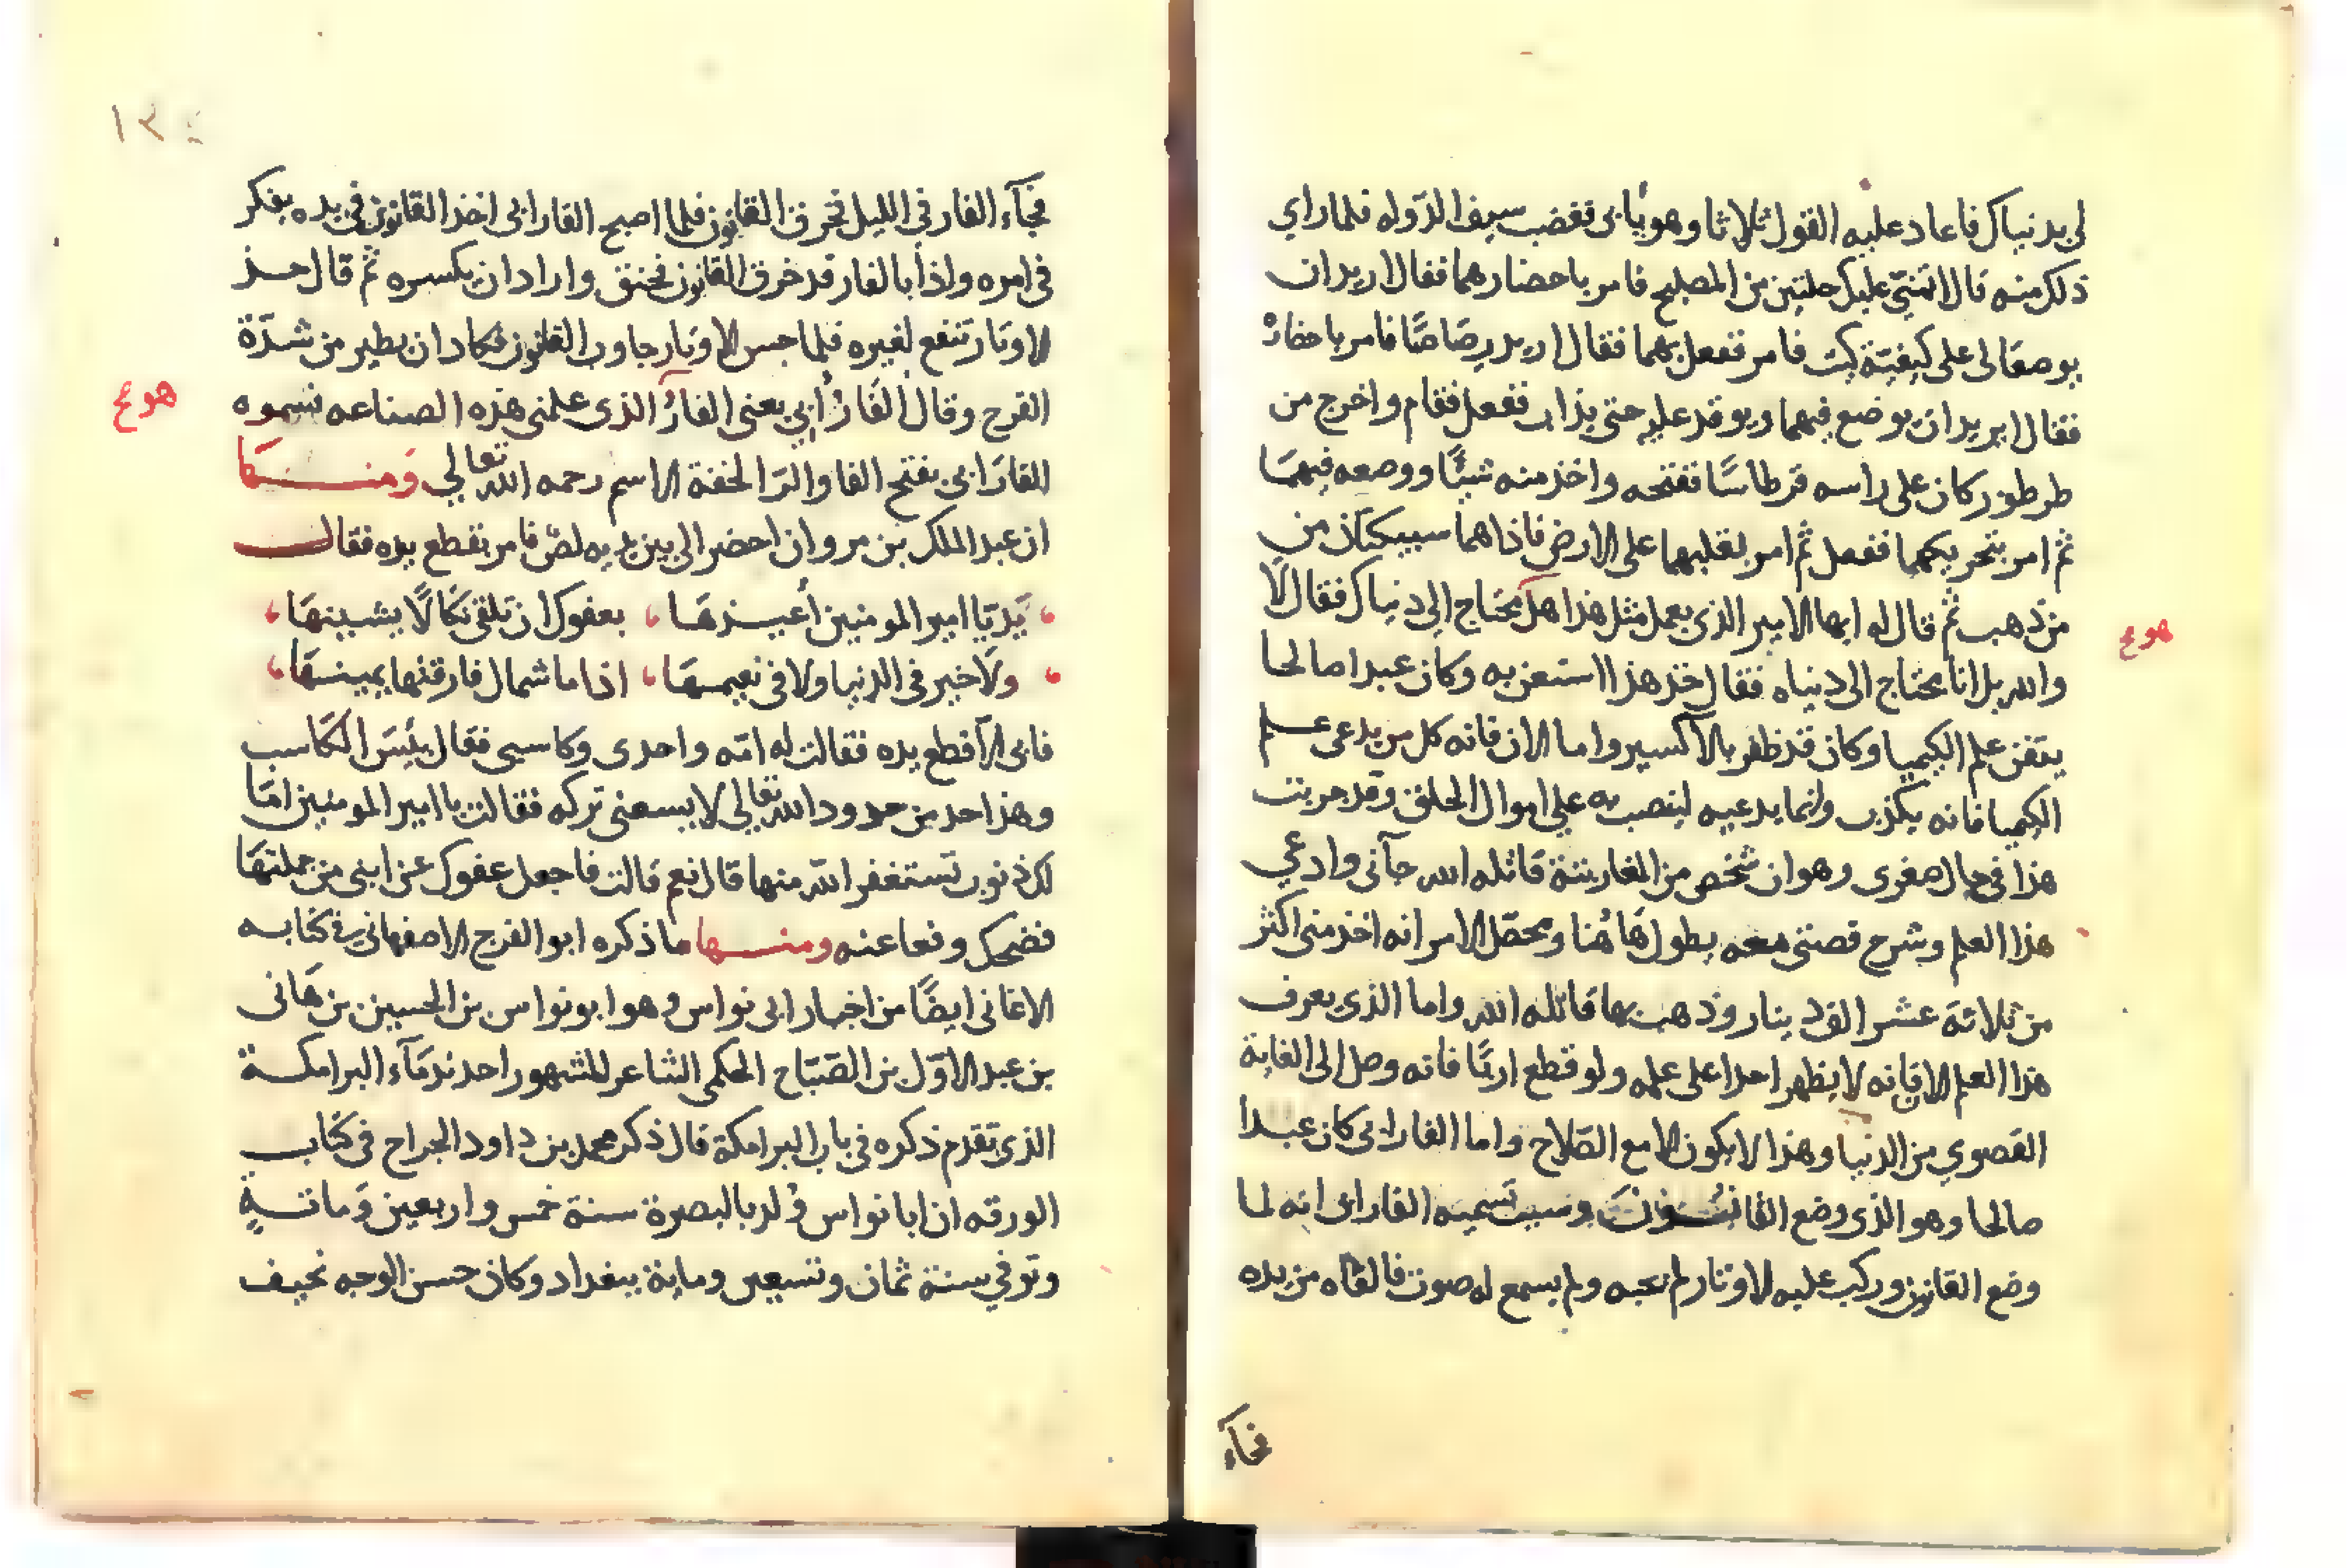 لي بدنياك فاعاد عليه القول ثلاثا وهو يابى فغضب سيف الدوله فلما راي
ذلك منه قال اتمني عليك حلتين من المصليح فامر باحضارهما فقال اريد ان
يوضعا لى على كيفية كيت فامر ففعل بهما فقال اريد رصاصًا فامر باحضاره
فقال اريد ان يوضع فيهما ويوقد عليه حتى يذاب ففعل فقام واخرج من
طرطور كان على راسه قرطاسًا ففتحه واخذ منه شيئًا ووضعه فيهما
ثم امر بتحريكهما ففعل ثم امر بقلبهما على الارض فاذا هما سبيكتان من
من ذهب ثم قال له ايها الامير الذي يعمل مثل هذا هل يحتاج الي دنياك فقال لا
والله بل انا محتاج الى دنياه فقال خذ هذا استعن به وكان عبدا صالحا
يتقن علم الكيميا وكان قد ظفر بالاكسير واما الان فانه كل من يدعى علم
الكيميا فانه يكذب وانما يدعيه لينصب به علي اموال الخلق وقد جربت
هذا في حال صغرى وهو ان شخص من المغاربة قاتله الله جآنى وادعي
هذا العلم وشرح قصتي معه يطول هَا هُنا ومحصّل الامر انه اخذ منى اكثر
من ثلاثة عشر الف دينار وذهب بها قاتله الله واما الذي يعرف
هذا العلم الان فانه لا يظهر احدا على علمه ولو قطع اربًا فانه وصل الى الغاية
القصوي من الدنيا وهذا لا يكون الا مع الصّلاح واما الفارابى كان عبدا
صالحا وهو الذى وضع القانون وسبب تسميته الفارابى انه لما
وضع القانون وركب عليه الاوتار لم تعجبه ولم يسمع له صوت فالقاه من يده
فجآء
هوع
١٣٤
فجآء الفار في الليل فخرق القانون فلما اصبح الفارابى اخذ القانون فى يده يفكر
فى امره واذا بالفار قد خرق القانون فحنق واراد ان يكسره ثم قال خذ
الاوتار تنفع لغيره فلما جس الاوتار جاوب القانون فكاد ان يطير من شدّة
الفرح وقال الفَارُ أبي يعنى الفارُ الذى علمنى هذه الصناعه فسموه
الفَارَابى بفتح الفا والرّا لخفة الاسم رحمه الله تعالي وَمنها
ان عبد الملك بن مروان احضر الى بين يديه لصّ فامر بقطع يده فقال
يَدِي يا امير المومنين أُعيذهَا ، بعفوك ان تلقى نكَالًا يشينهَا
ولَا خير فى الدنيا ولا فى نعيمهَا ، اذا ما شمال فارقتها يمينهَا
فابى الا قطع يده فقالت له امّه واحدى وكاسبى فقال بئسَ الكَاسب
وهذا حد من حدود الله تعالي لا يسعنى تركه فقالت يا امير المومنين امَا
لك ذنوب تستغفر الله منها قال نعم قالت فاجعل عفوك عن ابنى من جملتهَا
فضحك وعفا عنه ومنها ما ذكره ابو الفرج الاصفهانى في كتابه
الاغانى ايضًا من اخبار ابى نواس وهو ابو نواس بن الحسين بن هَانى
بن عبد الاوّل بن الصّبّاح الحكمى الشاعر المشهور احد ندمَآء البرامكة
الذى تقدم ذكره فى باب البرامكة قال ذكر محمد بن داود الجراح فى كتاب
الورقه ان ابا نواس وُلد بالبصرة سنة خمس واربعين وَمائة
وتوفي سنة ثمان وتسعين وماية ببغداد وكان حسن الوجه نحيف
هوع